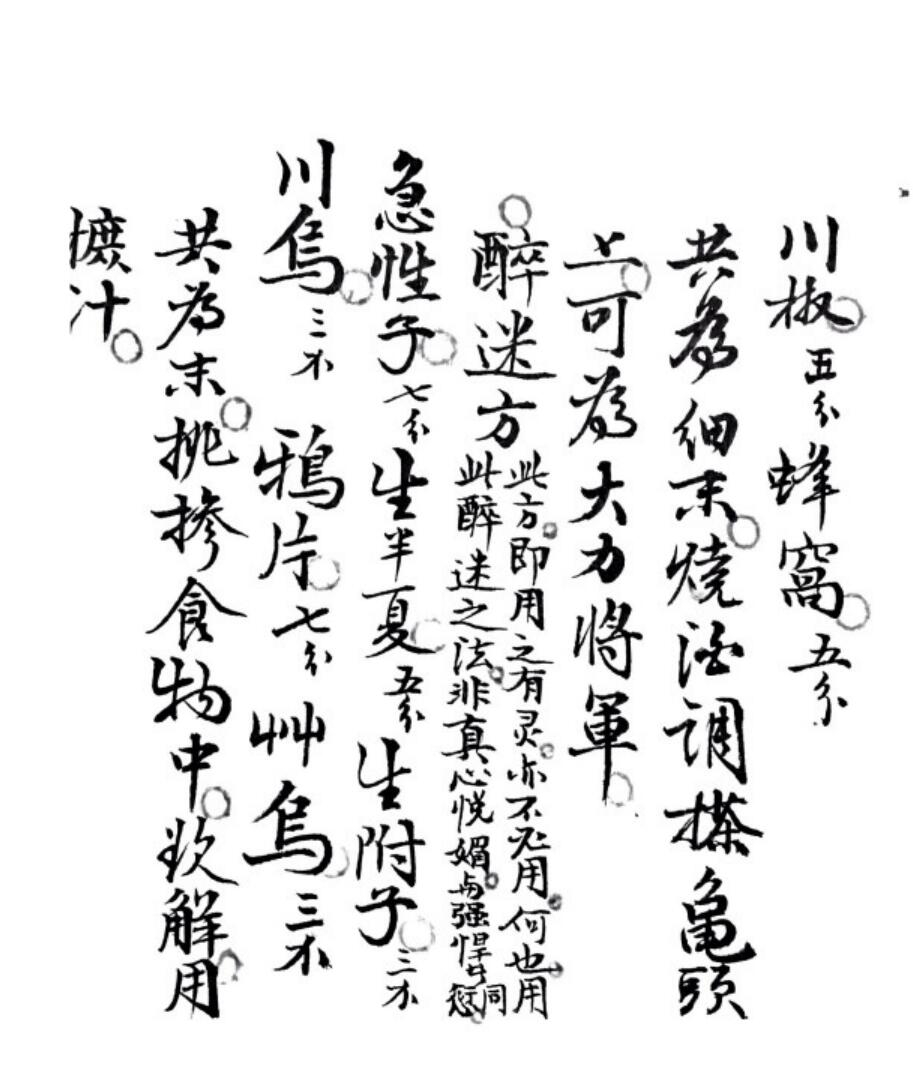 川椒五分蜂窩五分
共為細末燒酒調搽龜頭
上可為大力將軍
醉迷方
此方即用之有灵亦不必用何也用
此醉迷之法非真心悦媚与强悍同
急性子七分生半夏五分生附子三
川烏三鴉片七分艸烏三
共為末挑掺食物中欲解用
樜汁